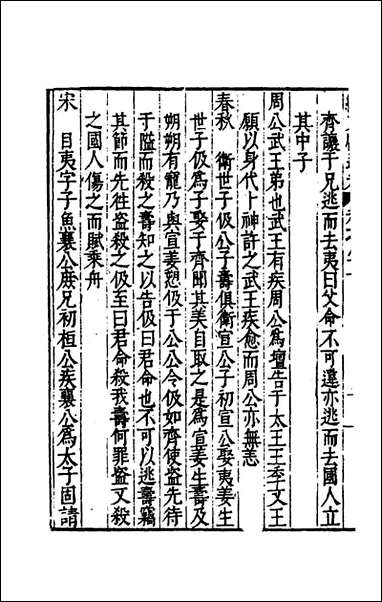 齊讓于兄逃而去夷曰父命不可違亦逃而去國人立
其中子
周公武王弟也武王有疾周公為壇告于太王王季文王
願以身代卜神許之武王疾愈而周公亦無恙
春秋　衛世子伋公子壽俱衛宣公子初宣公娶夷姜生
世子伋為子娶于齊聞其美自取之是為宣姜生壽及
朔朔有寵乃與宣姜愬伋于公公令伋如齊使盜先待
于隘而殺之壽知之以告伋曰君命也不可以逃壽竊
其節而先往盜殺之伋至曰君命殺我壽何罪盜又殺
之國人傷之而賦乘舟
宋　目夷字子魚襄公庶兄初桓公疾襄公為太子固請